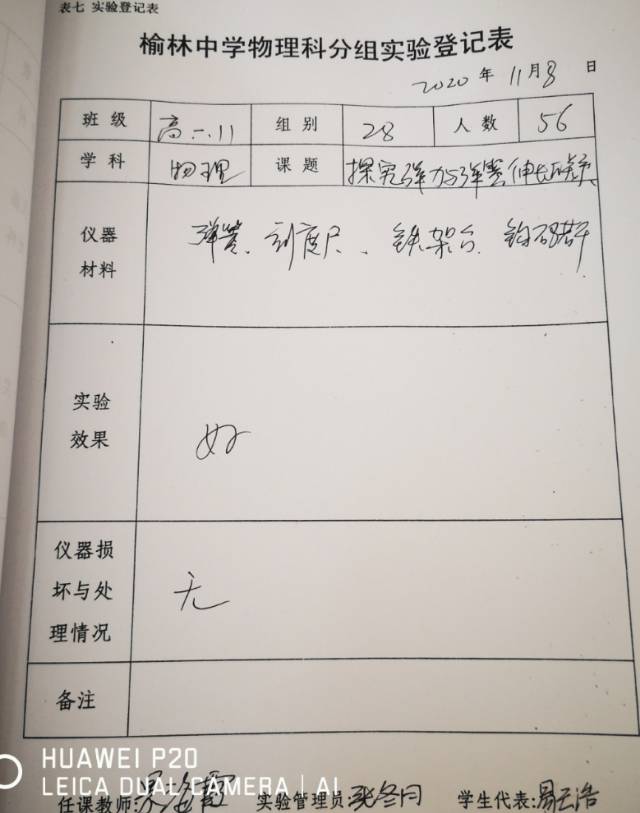 表七 实验登记表
榆林中学物理科分组实验登记表
2020 年 11 月 8 日
班级 高一.11 组别 28 人数 56
学科 物理 课题 探究弹力与弹簧伸长的关系
仪器材料 弹簧、刻度尺、铁架台、钩码若干
实验效果 好
仪器损坏与处理情况 无
备注
HUAWEI P20
LEICA DUAL CAMERA | AI
任课教师: 实验管理员: 张冬月 学生代表: